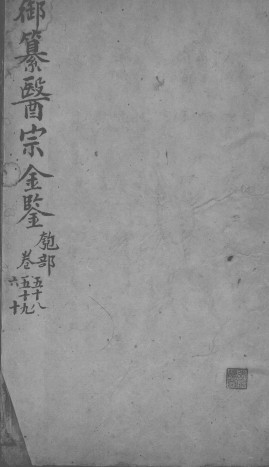 御纂醫宗金鑒
匏部
卷
五十八
五十九
六十